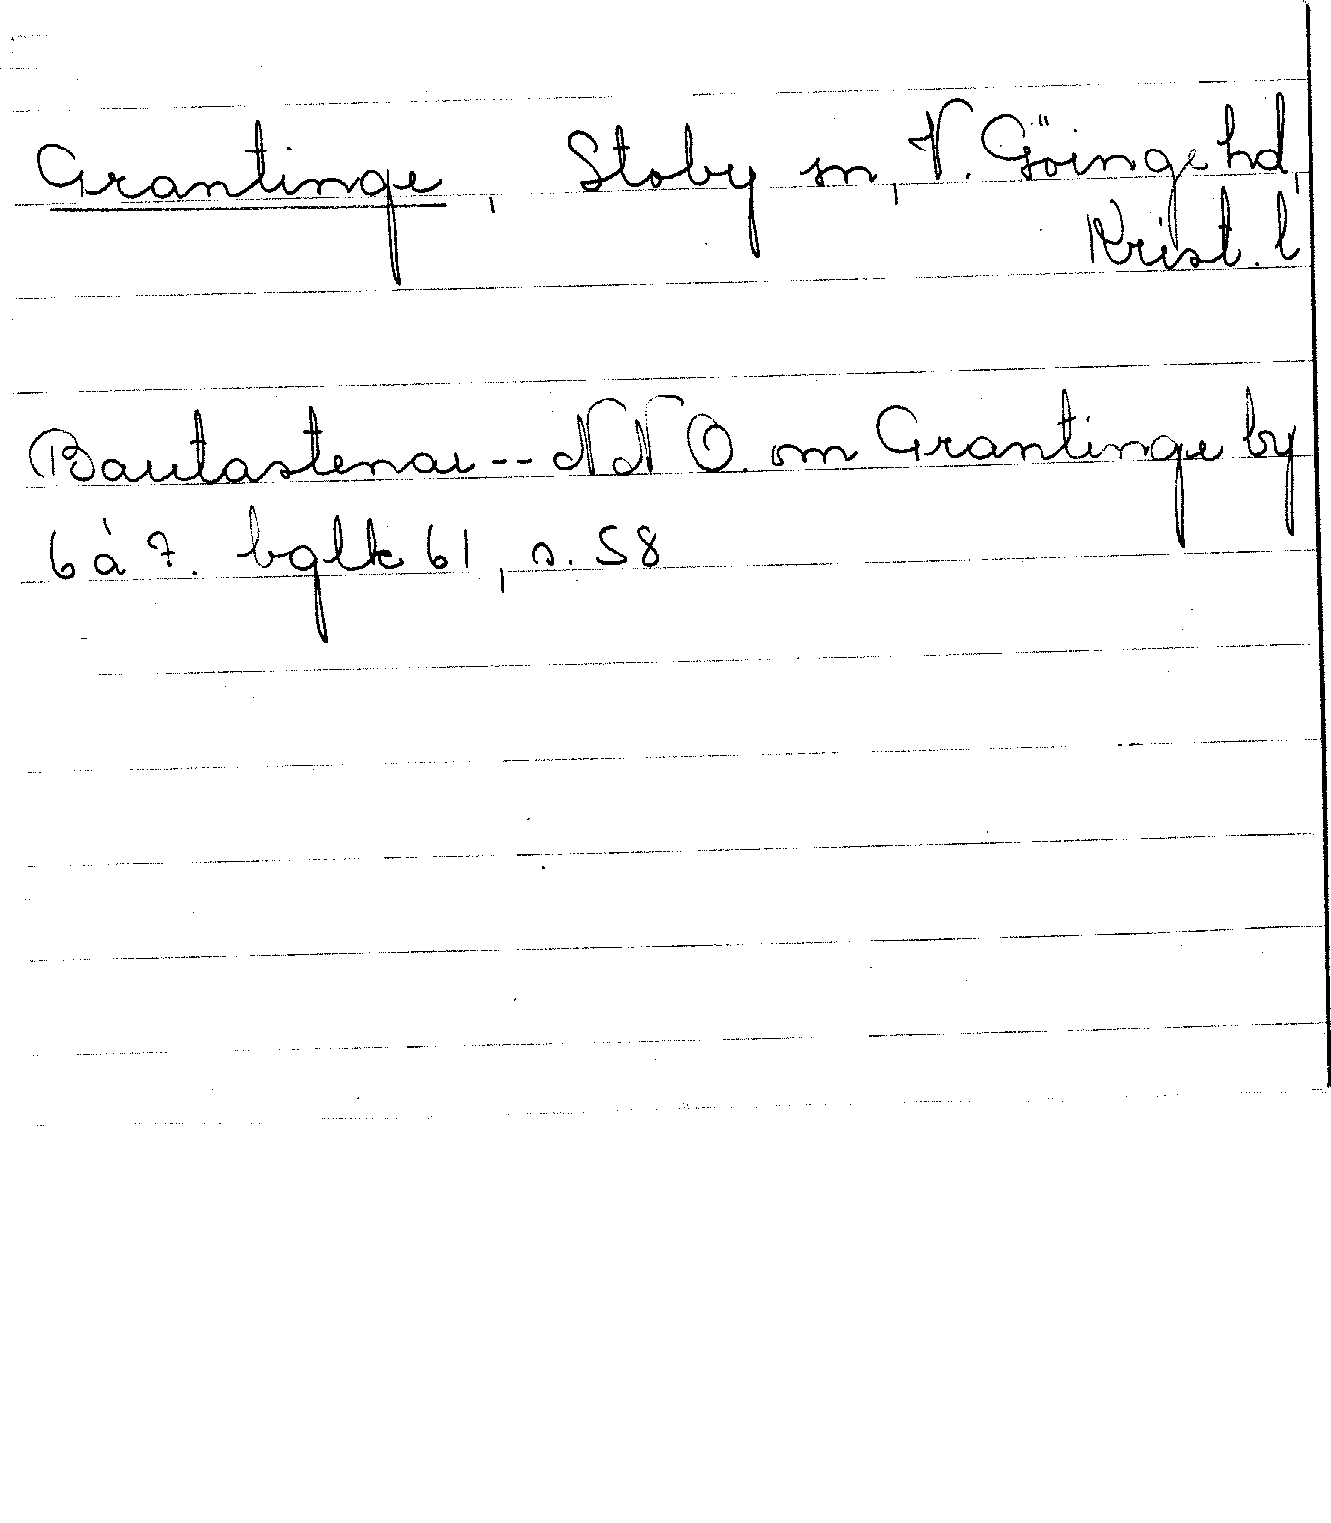 Grantinge, Stoby sn, V. Göinge hd,
Krist. l
Bautastenar -- NNO. om Grantinge by
6 à 7. bglk 61, s. 58